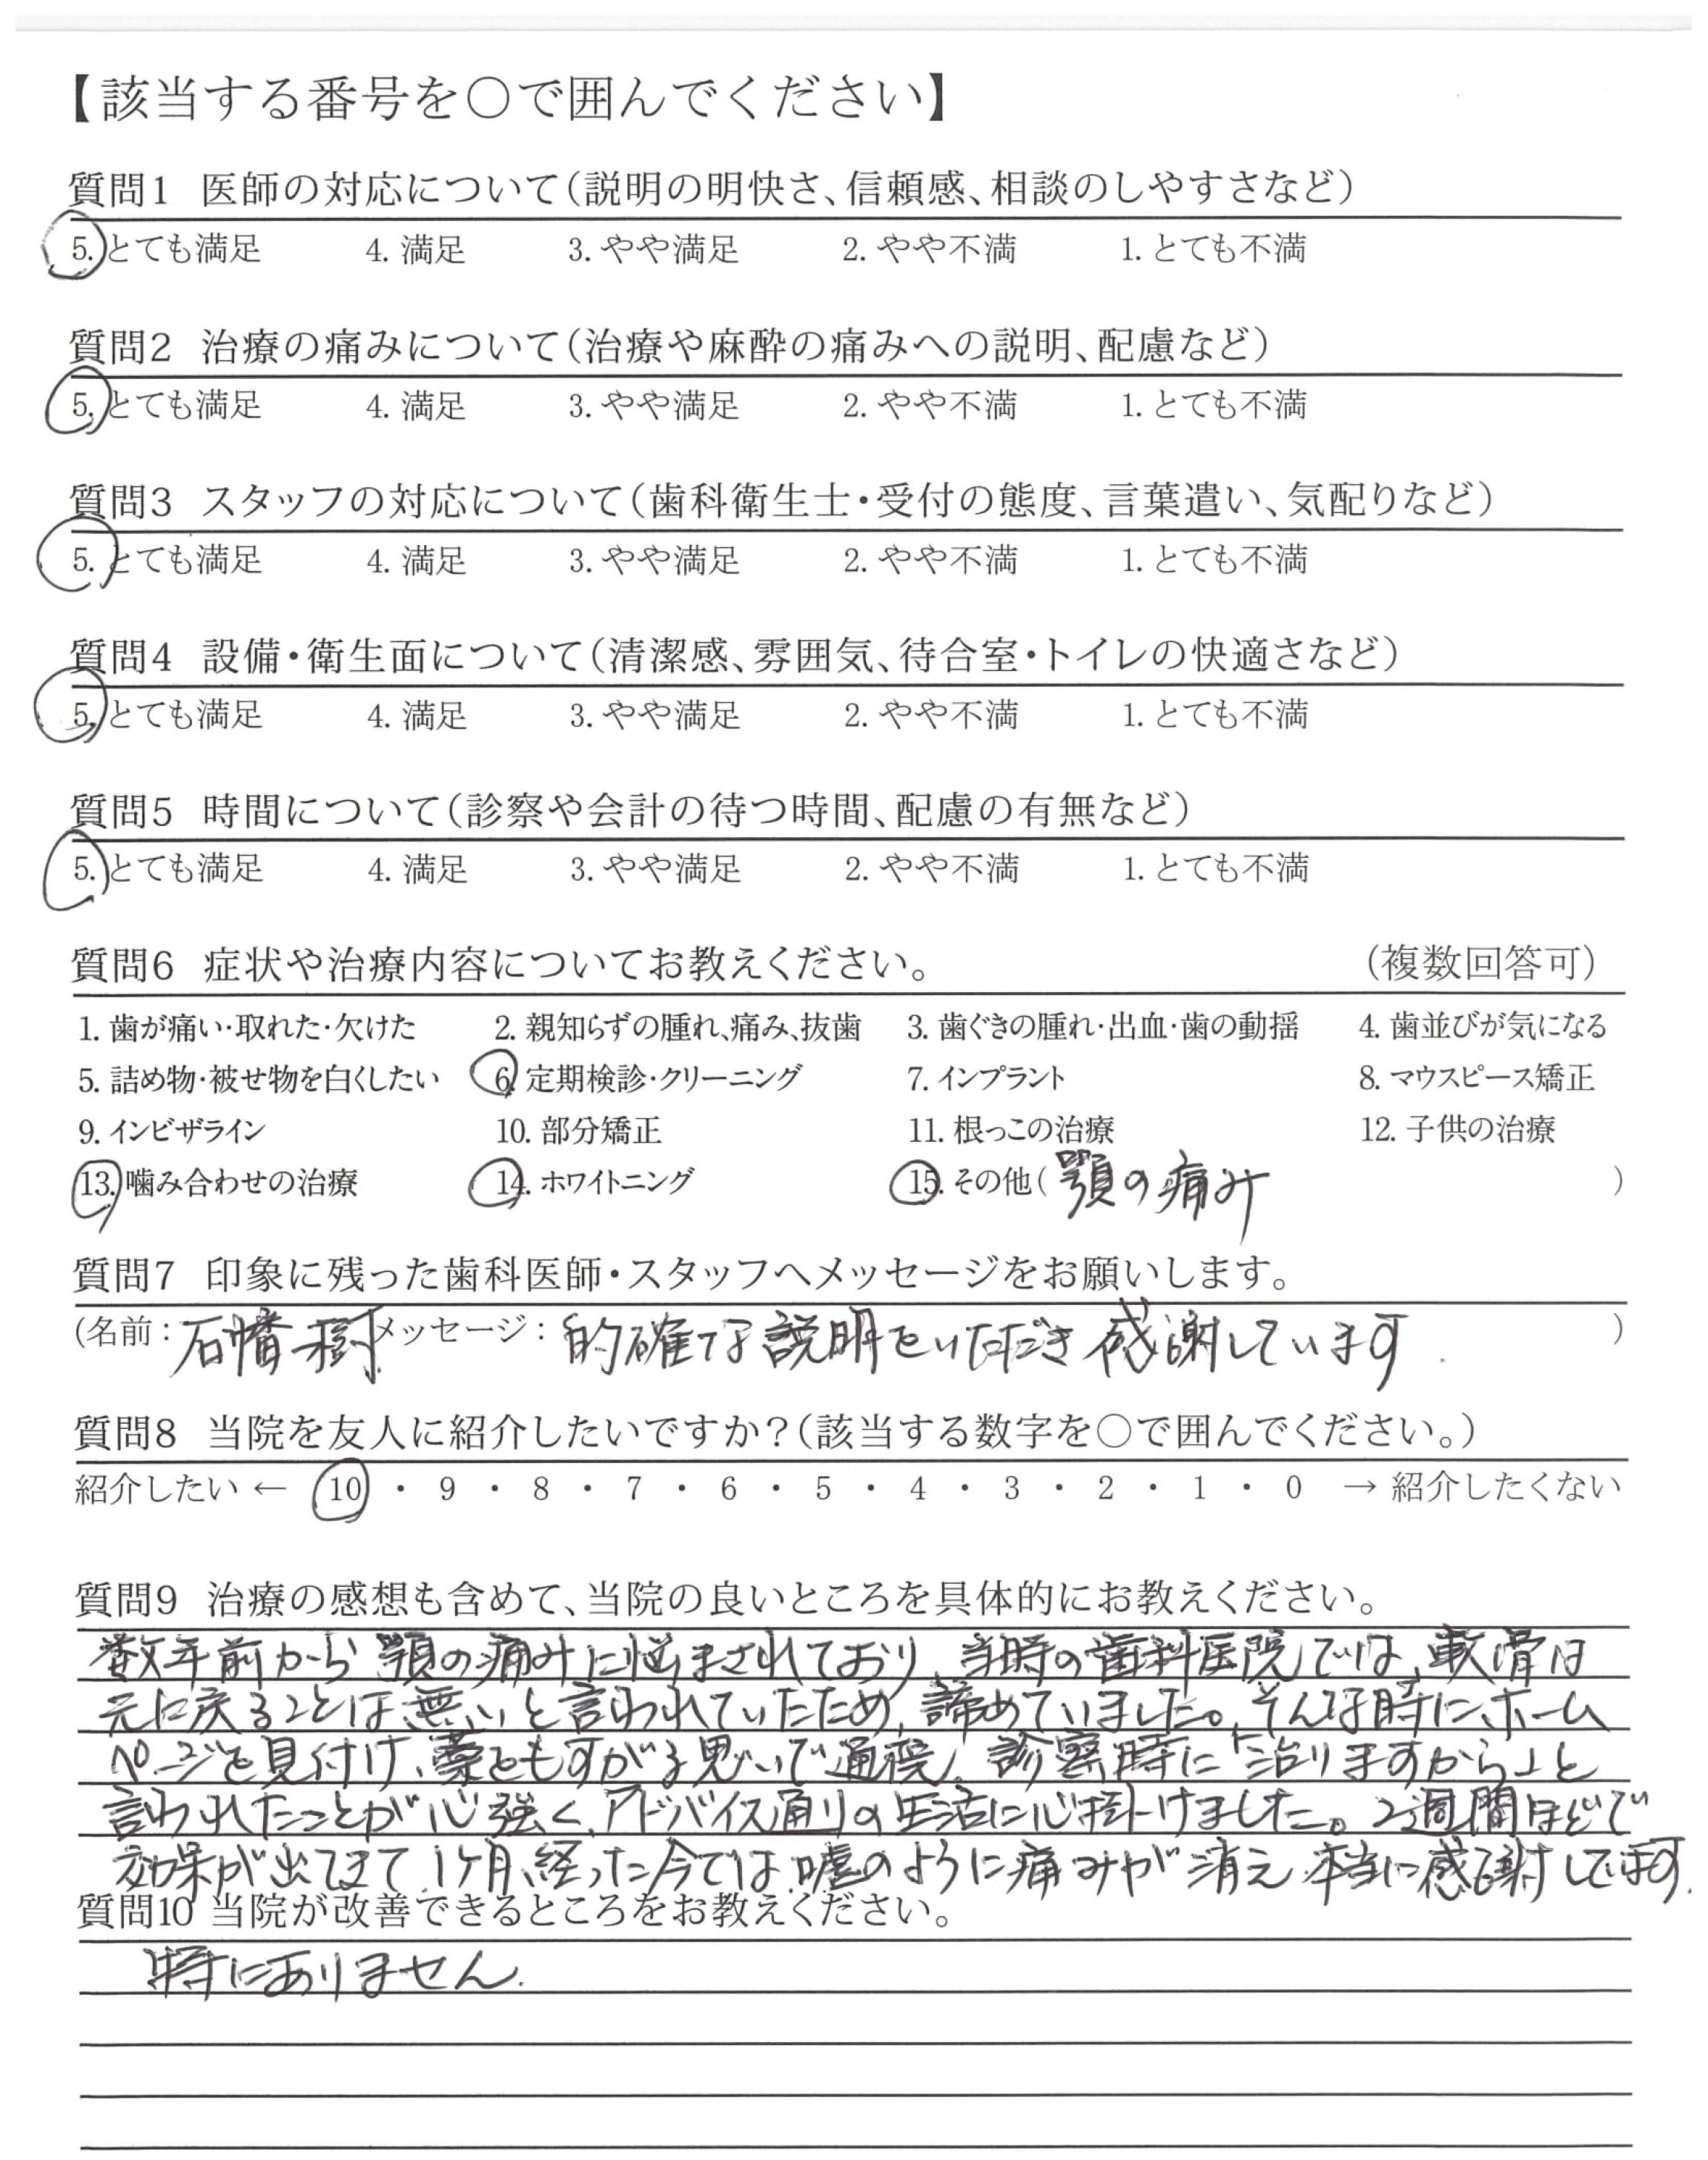 【該当する番号を○で囲んでください】
質問1 医師の対応について(説明の明快さ、信頼感、相談のしやすさなど)
5. とても満足 4. 満足 3. やや満足 2. やや不満 1. とても不満
質問2 治療の痛みについて(治療や麻酔の痛みへの説明、配慮など)
5. とても満足 4. 満足 3. やや満足 2. やや不満 1. とても不満
質問3 スタッフの対応について(歯科衛生士・受付の態度、言葉遣い、気配りなど)
5. とても満足 4. 満足 3. やや満足 2. やや不満 1. とても不満
質問4 設備・衛生面について(清潔感、雰囲気、待合室・トイレの快適さなど)
5. とても満足 4. 満足 3. やや満足 2. やや不満 1. とても不満
質問5 時間について(診察や会計の待つ時間、配慮の有無など)
5. とても満足 4. 満足 3. やや満足 2. やや不満 1. とても不満
質問6 症状や治療内容についてお教えください。 (複数回答可)
1. 歯が痛い・取れた・欠けた 2. 親知らずの腫れ、痛み、抜歯 3. 歯ぐきの腫れ・出血・歯の動揺 4. 歯並びが気になる
5. 詰め物・被せ物を白くしたい 6. 定期検診・クリーニング 7. インプラント 8. マウスピース矯正
9. インビザライン 10. 部分矯正 11. 根っこの治療 12. 子供の治療
13. 噛み合わせの治療 14. ホワイトニング 15. その他( 顎の痛み )
質問7 印象に残った歯科医師・スタッフへメッセージをお願いします。
(名前: 石幡 樹 メッセージ: 的確な説明をいただき感謝しています. )
質問8 当院を友人に紹介したいですか?(該当する数字を○で囲んでください。)
紹介したい ← 10 ・ 9 ・ 8 ・ 7 ・ 6 ・ 5 ・ 4 ・ 3 ・ 2 ・ 1 ・ 0 → 紹介したくない
質問9 治療の感想も含めて、当院の良いところを具体的にお教えください。
数年前から顎の痛みに悩まされており、当時の歯科医院では、軟骨は
元に戻ることは無いと言われていたため、諦めていました。そんな時にホーム
ページを見付け、藁をもすがる思いで通院、診察時に「治りますから」と
言われたことが心強く、アドバイス通りの生活に心掛けました。2週間ほどで
効果が出てきて、1ケ月経った今では嘘のように痛みが消え本当に感謝しています.
質問10 当院が改善できるところをお教えください。
特にありません.